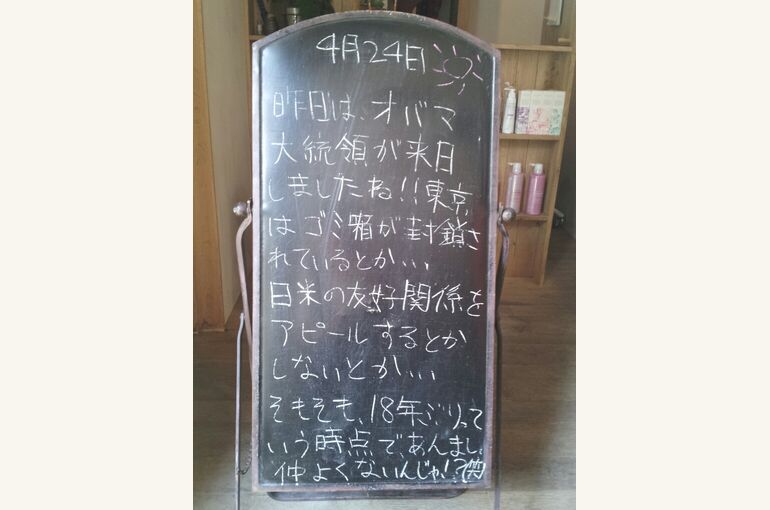 4月24日
昨日は、オバマ
大統領が来日
しましたね!!東京
はゴミ箱が封鎖さ
れているとか、、、
日米の友好関係を
アピールするとか
しないとか、、、
そもそも、18年ぶりって
いう時点で、あんまし
仲よくないんじゃ!?(笑)